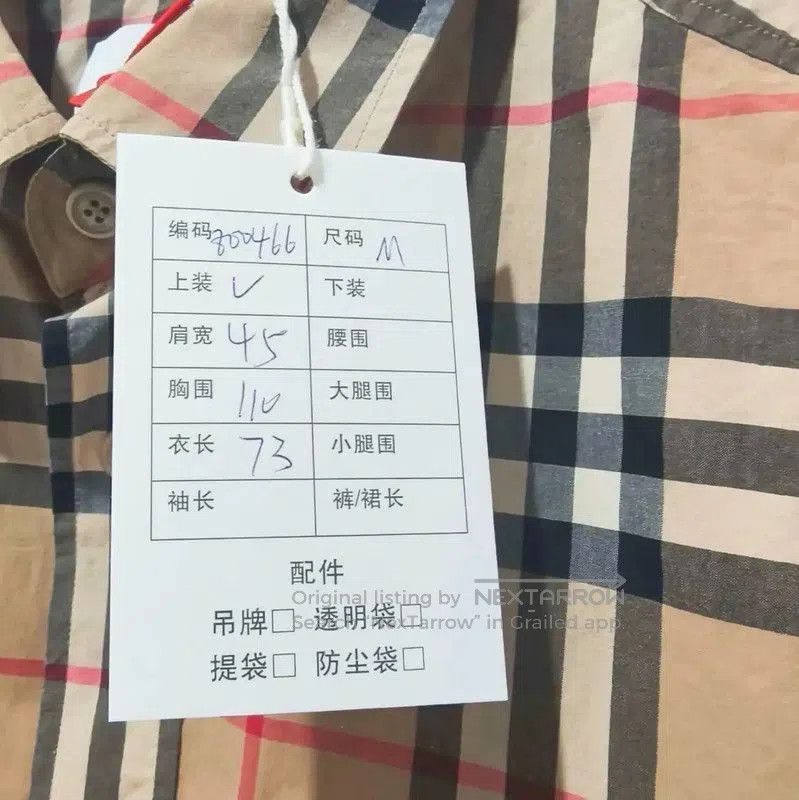 编码 800466 尺码 M
上装 ✓ 下装
肩宽 45 腰围
胸围 110 大腿围
衣长 73 小腿围
袖长 裤/裙长
配件
Original listing by NEXTARROW
吊牌□ 透明袋□
"NexTarrow" in Grailed app.
提袋□ 防尘袋□